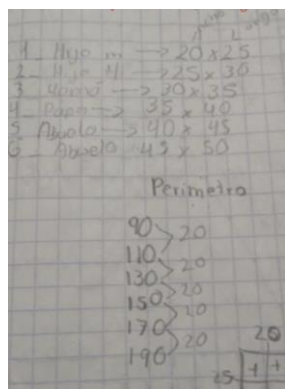 A L
1_ Hijo m → 20 x 25
2_ Hijo M → 25 x 30
3_ Mamá → 30 x 35
4_ Papa → 35 x 40
5_ Abuela → 40 x 45
6_ Abuelo 45 x 50
Perimetro
90
20
110
20
130
20
150
20
170
20
190
20
25 + +